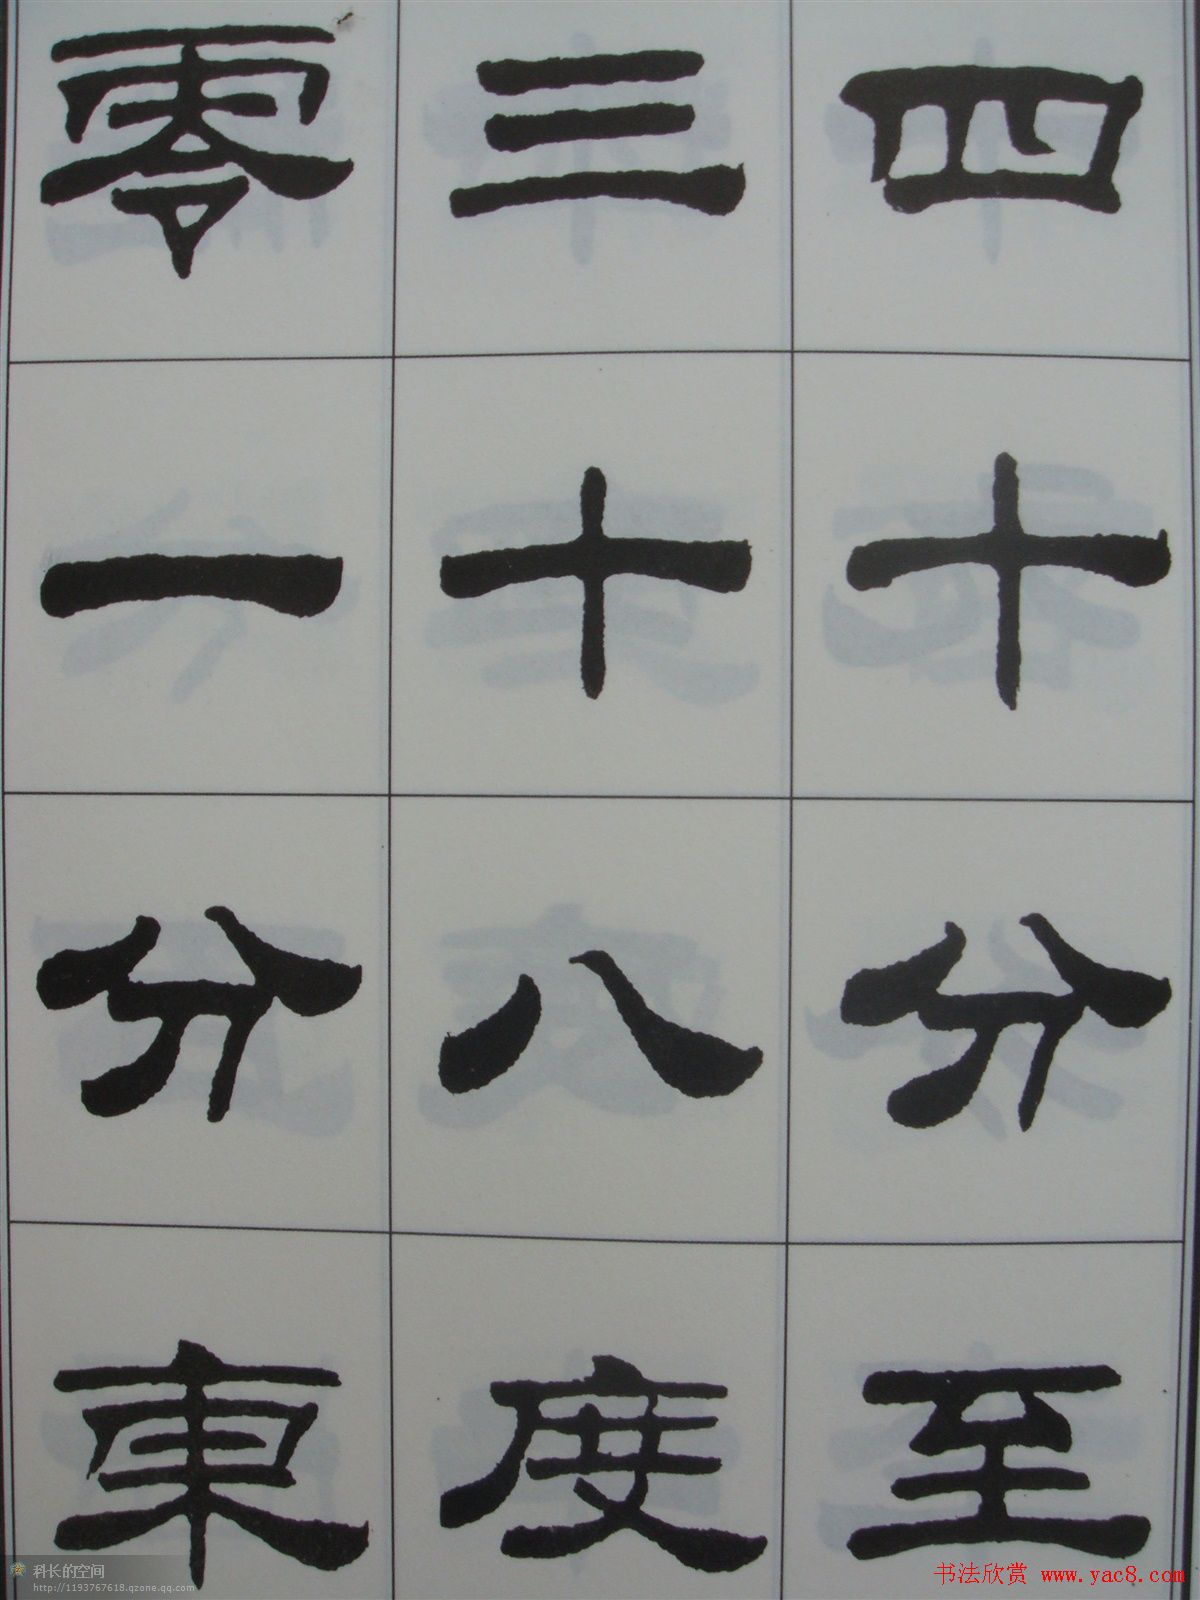 四十分至
三十八度
零一分東
科长的空间
http://1193767618.qzone.qq.com
书法欣赏 www.yac8.com